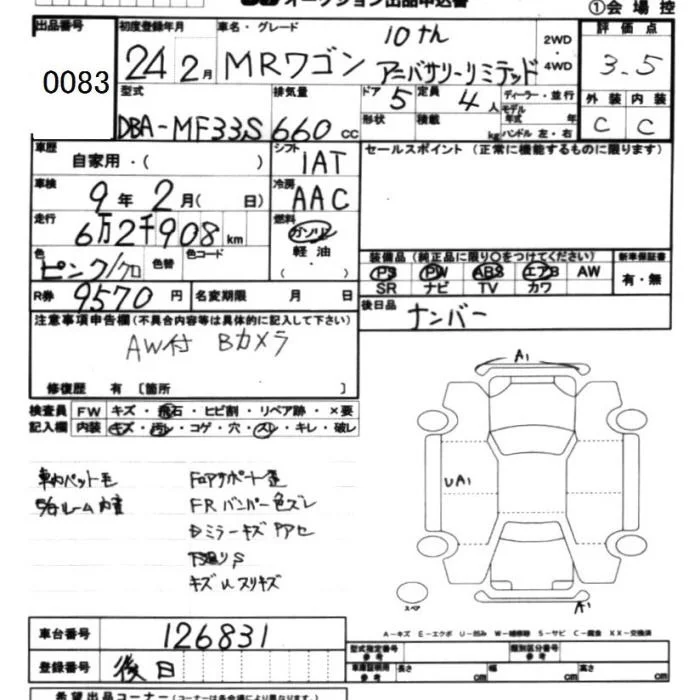 オークション出品申込書
①会場控
出品番号 初度登録年月 車名・グレード 10th 2WD・4WD 評価点
0083 24 2月 MRワゴン アニバサリーリミテッド 3.5
型式 排気量 ドア 5 定員 4人 ディーラー・並行 外装 内装
DBA-MF33S 660cc 形状 積載 kg モデル年式 年 ハンドル 左・右 C C
車歴 自家用・( ) シフト IAT セールスポイント (正常に機能するものに限ります)
車検 9年2月( 日) 冷房 AAC
走行 6万2千908km 燃料 ガソリン 軽油 ・( )
色 ピンク/クロ 色替 色コード 装備品 (純正品に限り○をつけてください) 新車保証書
PS PW ABS エアB AW 有・無
SR ナビ TV カワ
R券 9570円 名変期限 月 日 後日品 ナンバー
注意事項申告欄(不具合内容等は具体的に記入して下さい)
AW付 Bカメラ
修復歴 有 〔箇所 〕
検査員 FW キズ・飛石・ヒビ割・リペア跡・×要
記入欄 内装 キズ・汚レ・コゲ・穴・スレ・キレ・破レ
A1
UA1
A1
スペア
車内ペット毛
ルーム
FRバンパー色ズレ
ミラーキズ
キズ スリキズ
A-キズ E-エクボ U-凹み W-補修跡 S-サビ C-腐食 XX-交換済
車台番号 126831
登録番号 後日
型式指定番号 参考 類別区分番号 参考
車庫証明用 参考 長さ cm 幅 cm 高さ cm
希望出品コーナー(コーナーは各会場により異なります)